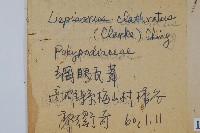 Lepisorus clathratus
(Clarke) Ching
Polypodiaceae
網眼瓦葦
高雄縣梅山村
60.1.11
1